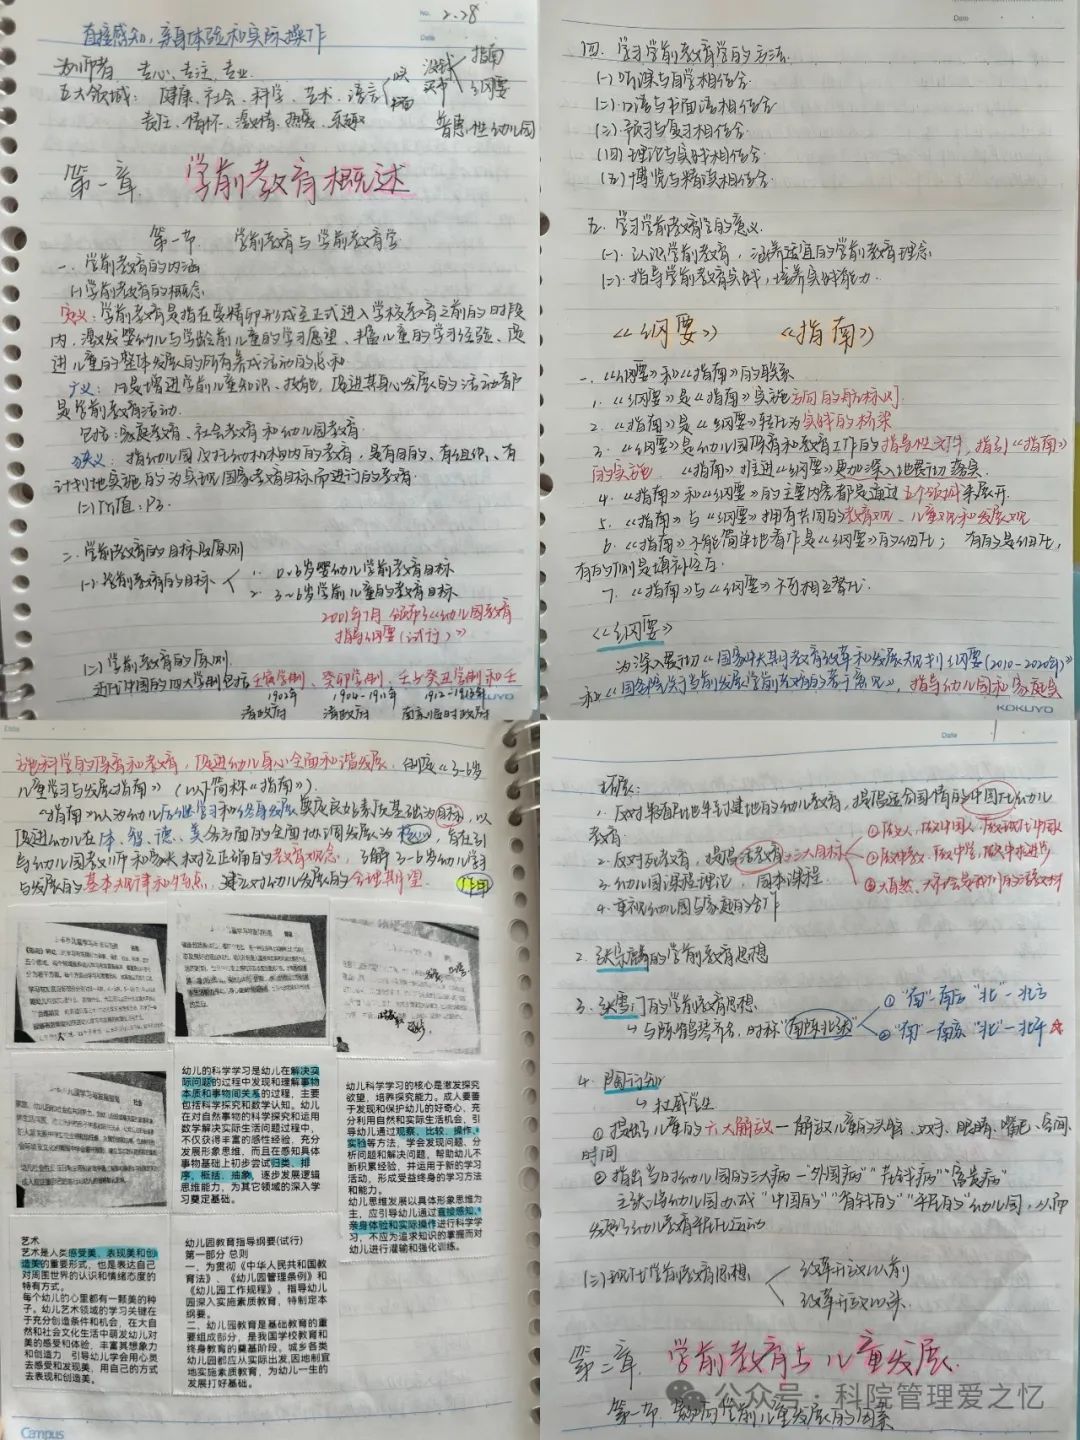 No. 2.28
Date
直接感知，亲身体验和实际操作
为师者 专心、专注、专业
五大领域：健康、社会、科学、艺术、语言
没钱
买书
指南
纲要
责任、情怀、激情、热爱、乐趣
普惠性幼儿园
第一章 学前教育概述
第一节 学前教育与学前教育学
一、学前教育的内涵
(一)学前教育的概念
定义：学前教育是指在受精卵形成至正式进入学校教育之前的时段
内，激发婴幼儿与学龄前儿童的学习愿望、丰富儿童的学习经验、促
进儿童的整体发展的所有养成活动的总和
广义：凡是增进学前儿童知识、技能，促进其身心发展的活动都
是学前教育活动.
包括：家庭教育、社会教育和幼儿园教育.
狭义：指幼儿园及托幼机构内的教育，是有目的、有组织、有
计划地实施的为实现国家教育目标而进行的教育.
(二)价值：P3.
二、学前教育的目标及原则
(一)学前教育的目标
1. 0~6岁婴幼儿学前教育目标
2. 3~6岁学前儿童的教育目标
2001年7月 颁布了《幼儿园教育
指导纲要（试行）》
(二)学前教育的原则
近代中国的四大学制包括壬寅学制、癸卯学制、壬子癸丑学制和壬
1902年 1904-1911年 1912-1913年
清政府 清政府 南京临时政府
KOKUYO
Date
四、学习学前教育学的方法
(一)听课与自学相结合
(二)口语与书面语相结合
(三)预习与复习相结合
(四)理论与实践相结合
(五)博览与精读相结合
五、学习学前教育学的意义
(一)认识学前教育，涵养适宜的学前教育理念
(二)指导学前教育实践，培养实践能力.
《纲要》 《指南》
一、《纲要》和《指南》的联系
1. 《纲要》是《指南》实施方向的航标灯
2. 《指南》是《纲要》转化为实践的桥梁
3. 《纲要》是幼儿园保育和教育工作的指导性文件，指引《指南》
的实施 《指南》推进《纲要》更加深入地贯彻落实.
4. 《指南》和《纲要》的主要内容都是通过五个领域来展开.
5. 《指南》与《纲要》拥有共同的教育观、儿童观和发展观
6. 《指南》不能简单地看作是《纲要》的细化；有的是细化，
有的则是填补空白.
7. 《指南》与《纲要》不可相互替代.
《纲要》
为深入贯彻《国家中长期教育改革和发展规划纲要(2010-2020年)》
和《国务院关于当前发展学前教育的若干意见》，指导幼儿园和家庭实
KOKUYO
Date
施科学的保育和教育，促进幼儿身心全面和谐发展，制定《3-6岁
儿童学习与发展指南》（以下简称《指南》）.
《指南》以为幼儿后继学习和终身发展奠定良好素质基础为目标，以
促进幼儿在体、智、德、美各方面的全面协调发展为核心，旨在引
导幼儿园教师和家长树立正确的教育观念，了解3-6岁幼儿学习
与发展的基本规律和特点，建立对幼儿发展的合理期望.
幼儿的科学学习是幼儿在解决实
际问题的过程中发现和理解事物
本质和事物间关系的过程，主要
包括科学探究和数学认知。幼儿
在对自然事物的科学探究和运用
数学解决实际生活问题过程中，
不仅获得丰富的感性经验，充分
发展形象思维，而且在感知具体
事物基础上初步尝试归类、排
序、概括、抽象，逐步发展逻辑
思维能力，为其它领域的深入学
习奠定基础。
幼儿科学学习的核心是激发探究
欲望，培养探究能力。成人要善
于发现和保护幼儿的好奇心，充
分利用自然和实际生活机会，引
导幼儿通过观察、比较、操作、
实验等方法，学会发现问题、分
析问题和解决问题，帮助幼儿不
断积累经验，并运用于新的学习
活动，形成受益终身的学习方法
和能力。
幼儿思维发展以具体形象思维为
主，应引导幼儿通过直接感知、
亲身体验和实际操作进行科学学
习，不应为追求知识的掌握而对
幼儿进行灌输和强化训练。
艺术
艺术是人类感受美、表现美和创
造美的重要形式，也是表达自己
对周围世界的认识和情绪态度的
特有方式。
每个幼儿的心里都有一颗美的种
子。幼儿艺术领域的学习关键在
于充分创造条件和机会，在大自
然和社会文化生活中萌发幼儿对
美的感受和体验，丰富其想象力
和创造力 引导幼儿学会用心灵
去感受和发现美，用自己的方式
去表现和创造美。
幼儿园教育指导纲要(试行)
第一部分 总则
一、为贯彻《中华人民共和国教
育法》、《幼儿园管理条例》和
《幼儿园工作规程》，指导幼儿
园深入实施素质教育，特制定本
纲要。
二、幼儿园教育是基础教育的重
要组成部分，是我国学校教育和
终身教育的奠基阶段。城乡各类
幼儿园都应从实际出发,因地制宜
地实施素质教育，为幼儿一生的
发展打好基础。
Campus
Date
拓展：
1. 反对半殖民地半封建地的幼儿教育，提倡适合国情的中国化幼儿
教育.
2. 反对死教育，提倡活教育 三大目标
①做人，做中国人，做现代中国人
②做中教，做中学，做中求进步
③大自然、大社会是我们的活教材
3. 幼儿园课程理论，固本课程
4. 重视幼儿园与家庭的合作
2. 张宗麟的学前教育思想
3. 张雪门的学前教育思想.
与陈鹤琴齐名，时称“南陈北张”
①“南”-南方 “北”-北方
②“南”-南京 “北”-北平
4. 陶行知
杜威学生
①提出了儿童的六大解放—解放儿童的头脑、双手、眼睛、嘴巴、空间、
时间
②指出当时幼儿园的三大病—“外国病”“花钱病”“富贵病”
主张将幼儿园办成“中国的”“省钱的”“平民的”幼儿园，从而
(三)现代学前教育思想
改革开放以前
改革开放以来
第二章 学前教育与儿童发展
第一节 影响学前儿童发展的因素
公众号·科院管理爱之忆